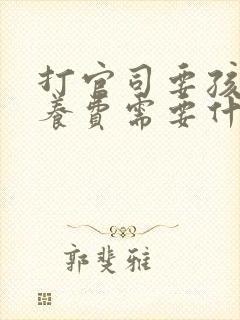 打官司要孩
养费需要什
郭斐雅